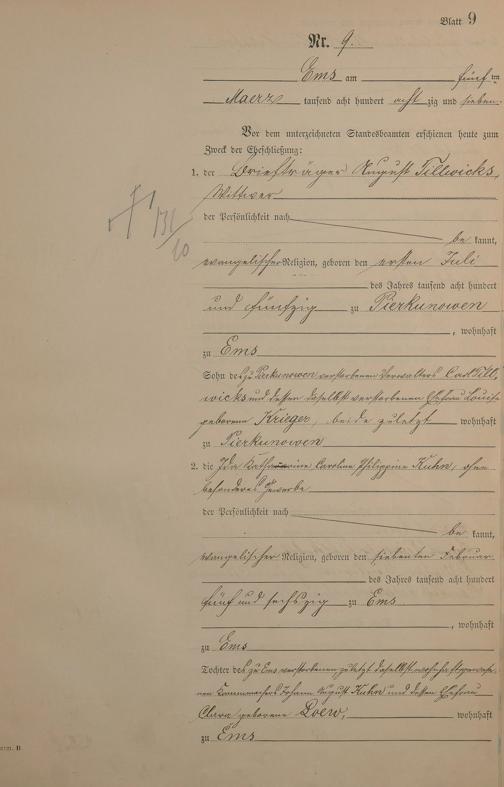 Blatt 9
Nr. 9.
Ems am fünf ten
Maerz tausend acht hundert acht zig und sieben
Vor dem unterzeichneten Standesbeamten erschienen heute zum
Zweck der Eheschließung:
1. der Briefträger August Tillwicks,
Wittwer
der Persönlichkeit nach
be kannt,
evangelischer Religion, geboren den ersten Juli
des Jahres tausend acht hundert
und fünfzig zu Pierkunowen
, wohnhaft
zu Ems
Sohn des zu Pierkunowen verstorbenen Verwalters Carl Till,
wicks und dessen daselbst verstorbenen Ehefrau Louise
geborenen Krieger, beide zuletzt wohnhaft
zu Pierkunowen
2. die Ida Katharine Caroline Philippine Kuhn, ohne
besonderes Gewerbe
der Persönlichkeit nach
be kannt,
evangelischer Religion, geboren den siebenten Februar
des Jahres tausend acht hundert
fünf und sechszig zu Ems
, wohnhaft
zu Ems
Tochter des zu Ems verstorbenen, zuletzt daselbst wohnhaft gewese-
nen Kammmachers Johann August Kuhn und dessen Ehefrau
Clara geborene Loew, wohnhaft
zu Ems
orm. B
131
10